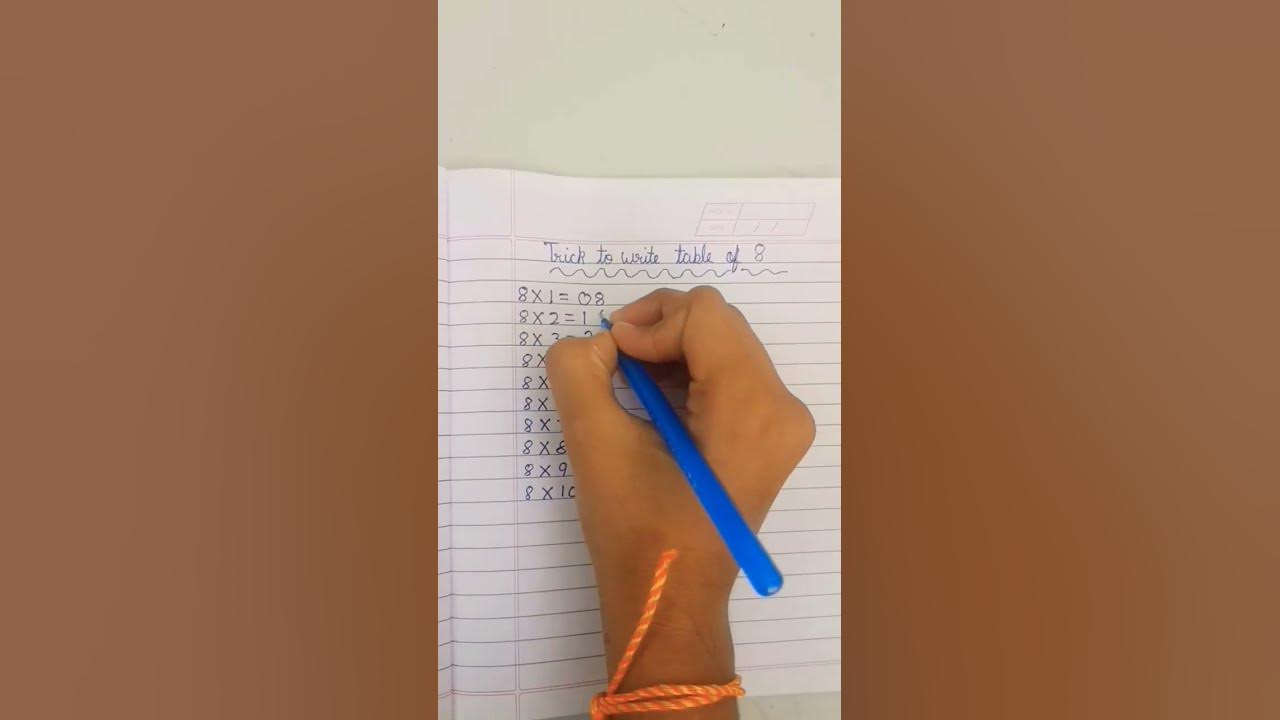 PAGE NO
DATE / /
Trick to write table of 8
8 X 1 = 08
8 X 2 = 1
8 X 3 = 2
8 X
8 X
8 X
8 X 7
8 X 8
8 X 9
8 X 10